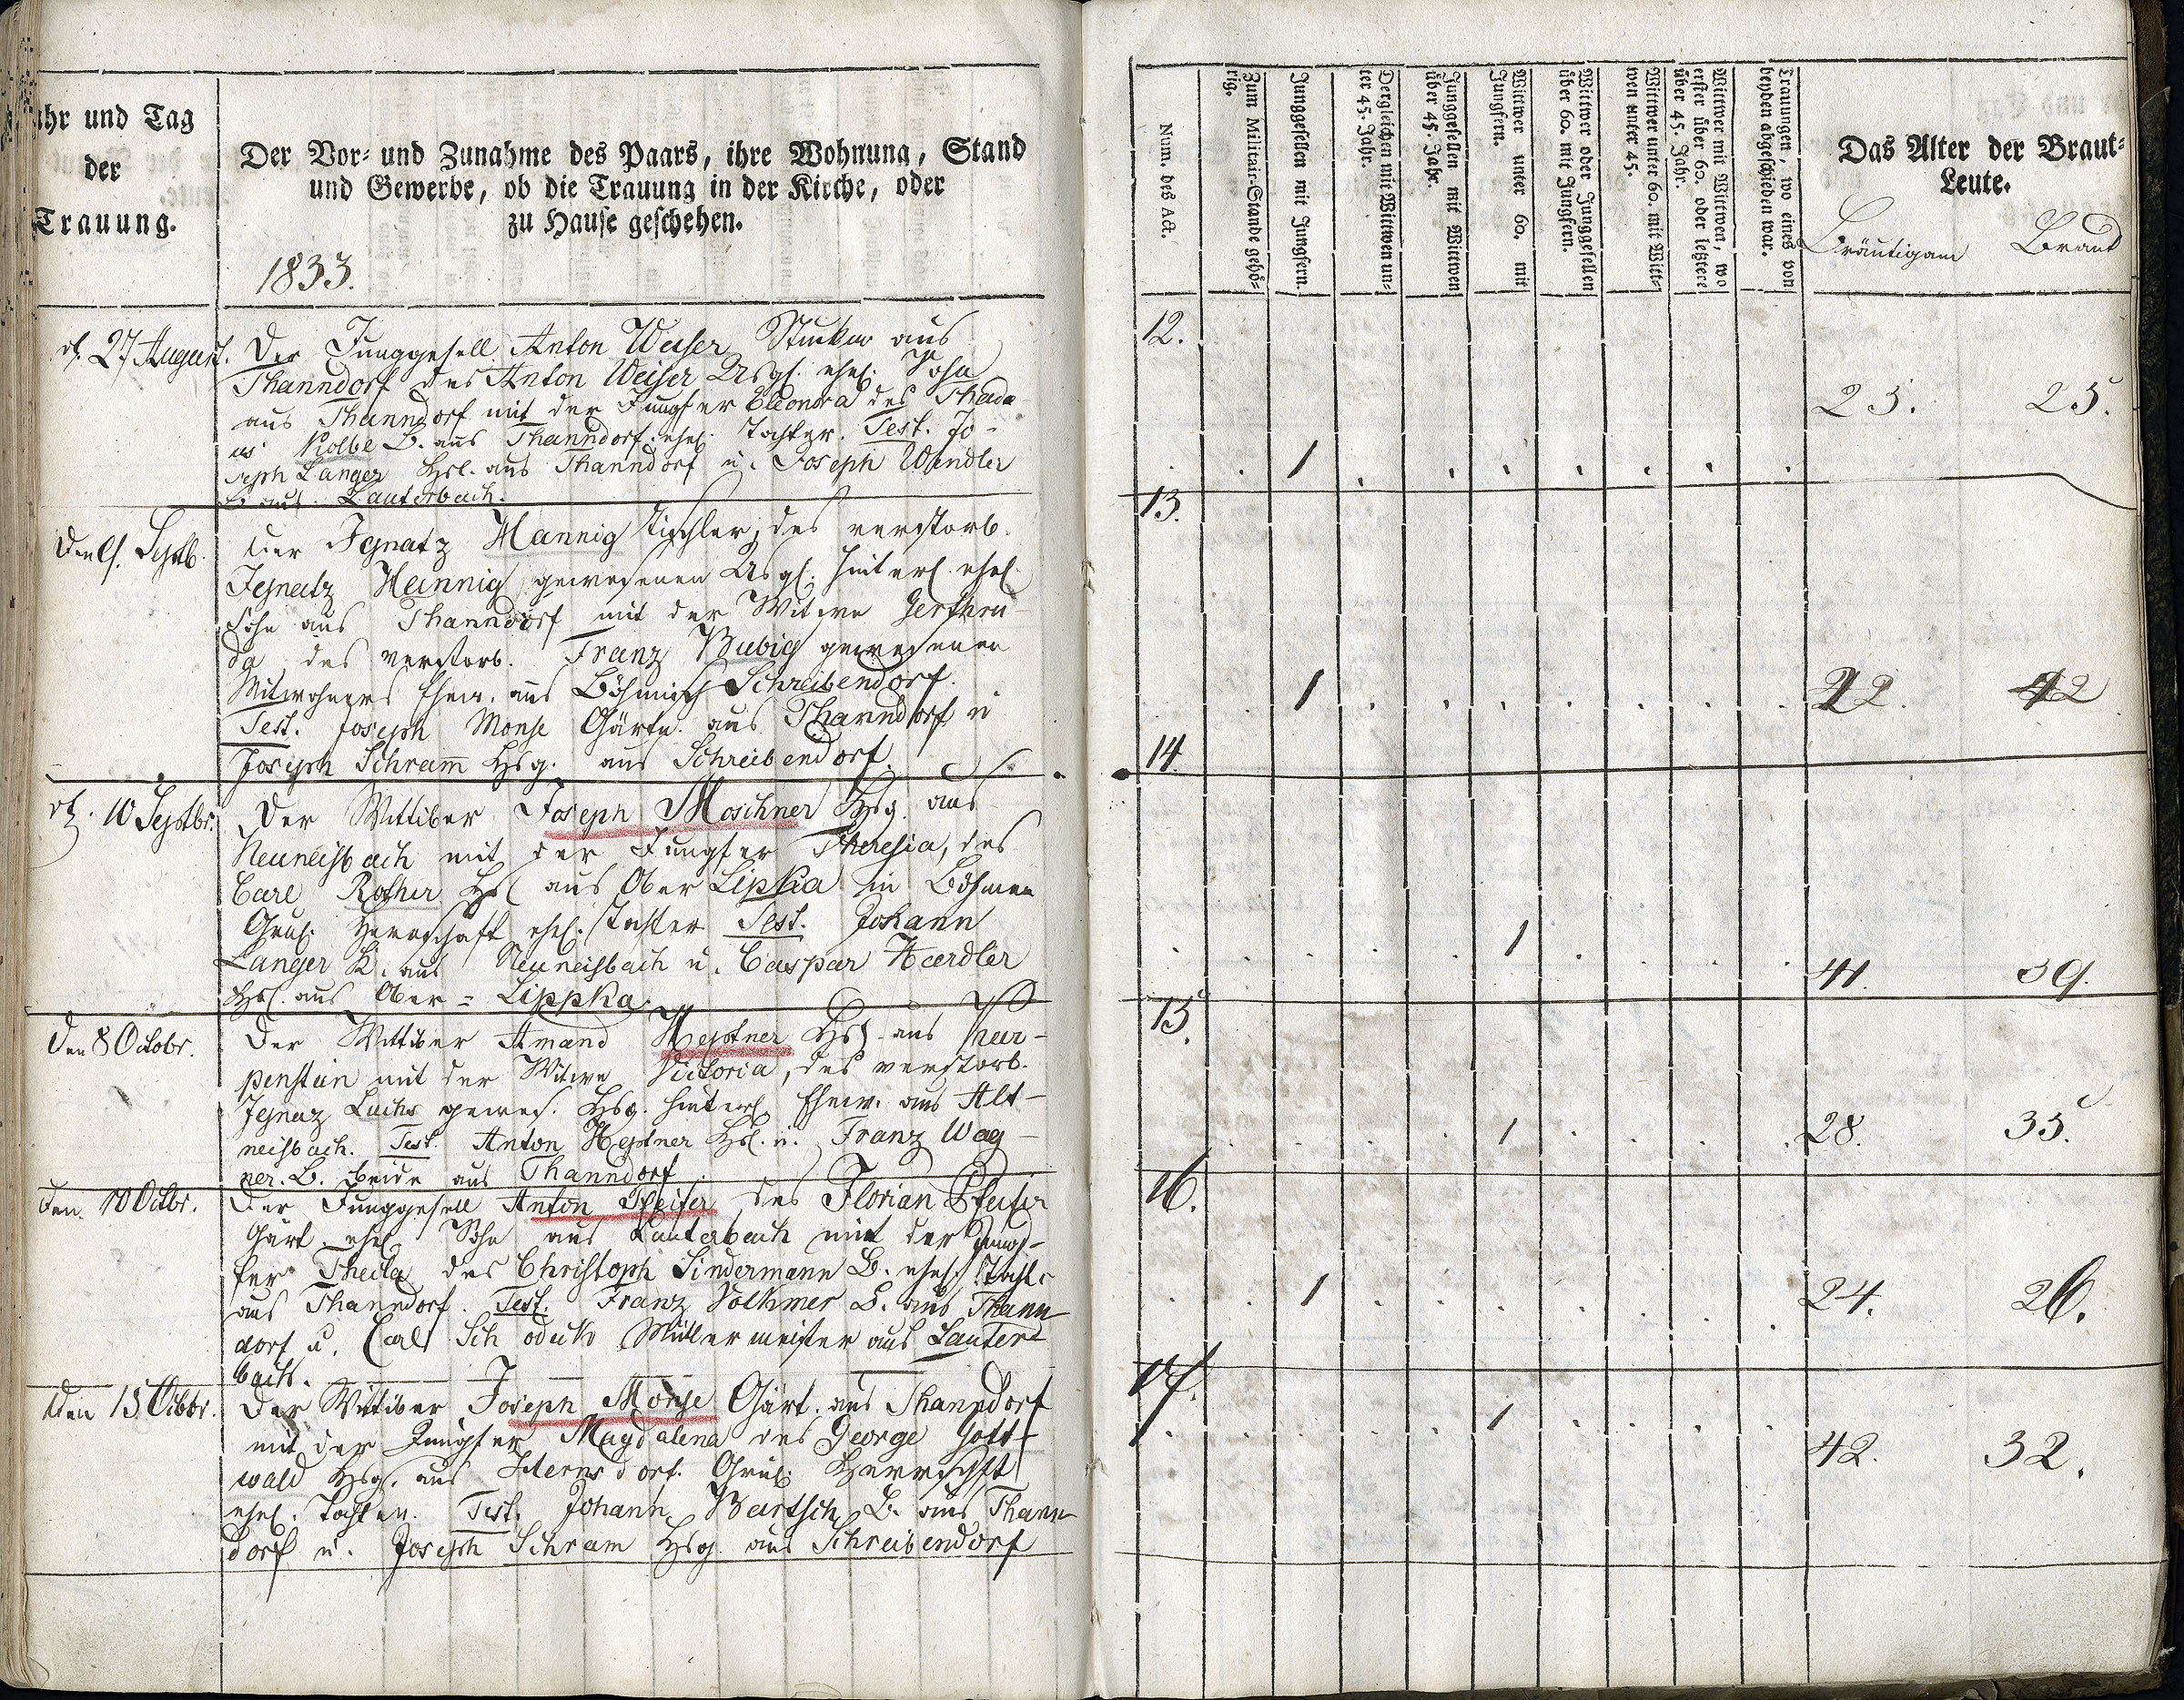 Jahr und Tag
der
Trauung.
Der Vor- und Zunahme des Paars, ihre Wohnung, Stand
und Gewerbe, ob die Trauung in der Kirche, oder
zu Hause geschehen.
1833.
27 August.
Der Junggesell Anton Weiser aus
Thanndorf des Anton Weiser ehel. Sohn
aus Thanndorf mit der Jungfer Eleonora des Thada
us Kolbe B. aus Thanndorf ehel. Tochter. Test. Jo-
seph Langer Hsl. aus Thanndorf u. Joseph Wendler
B aus Lauterbach.
Den Septb.
Der Ignatz Hannig Tischler, des verstorb.
Ignatz Hannig gewesenen hinterl. ehel.
Sohn aus Thanndorf mit der Witwe Gerthru
da des verstorb. Franz Bubig gewesenen
Mitwohners Ehew. aus Böhmisch Schreibendorf.
Test. Joseph Monse Gärtn. aus Thanndorf u
Joseph Schram̅ Hsg. aus Schreibendorf.
10 Septbr.
Der Wittiber Joseph Moschner Hsg. aus
Neuneisbach mit der Jungfer Theresia, des
Carl Rother Hsl aus Ober Lipka in Böhmen
Grul. Herrschaft ehel. Tochter Test. Johann
Langer K. aus Neuneisbach u. Caspar Haerdler
Hsl. aus Ober = Lippka.
Den 8 Octobr.
Der Wittiber Amand Heptner Hsl. aus
mit der Witwe Victoria, des verstorb.
Ignaz Luchs gewes. Hsg. hinterl. Ehew. aus Alt-
neisbach. Test. Anton Heptner Hsl. u. Franz Wag-
ner. B. beide aus Thanndorf
Den 10 Octbr.
Der Junggesell Anton Pfeifer des Florian Pfeifer
Gärt. ehel Sohn aus Lauterbach mit der Jung-
fer Thecla des Christoph Lindermann B. ehel. Tocht
aus Thanndorf. Test. Franz Volkmer B. aus Thann-
dorf u. Carl Müllermeister aus Lauter-
bach.
Den 15 Octbr.
Der Wittiber Joseph Monse Gärt. aus Thanndorf
mit der Jungfer Magdalena des George Gott-
wald Hsg. aus Grul. Herrschft
ehel. Tochter. Test. Johann Bartsch B. aus Thann-
dorf u. Joseph Schram Hsg. aus Schreibendorf
Num. des Act.
Zum Militair-Stande gehö-
rig.
Junggesellen mit Jungfern.
Dergleichen mit Wittwen un-
ter 45. Jahr.
Junggesellen mit Wittwen
über 45. Jahr.
Wittwer unter 60. mit
Jungfern.
Wittwer oder Junggesellen
über 60. mit Jungfern.
Wittwer unter 60. mit Witt-
wen unter 45.
Wittwer mit Wittwen, wo
erster über 60. oder letztere
über 45. Jahr.
Trauungen, wo eines von
beyden abgeschieden war.
Das Alter der Braut-
Leute.
Bräutigam Braut
12.
1 25. 25.
13.
1 42. 42
14.
1 41. 39.
15.
1 28. 35.
16.
1 24. 26.
17.
1 42. 32.